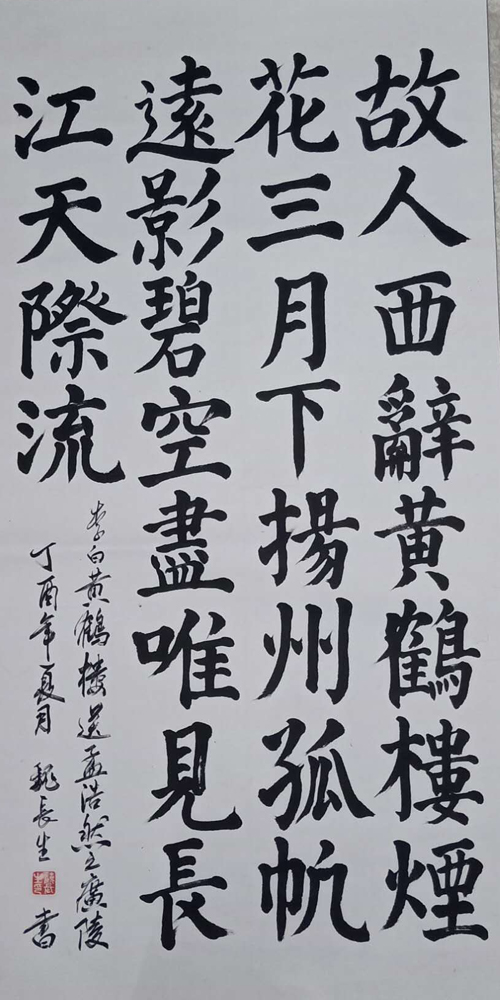 故人西辭黃鶴樓煙
花三月下揚州孤帆
遠影碧空盡唯見長
江天際流
李白黃鶴樓送孟浩然之廣陵
丁酉年夏月 魏長生 書